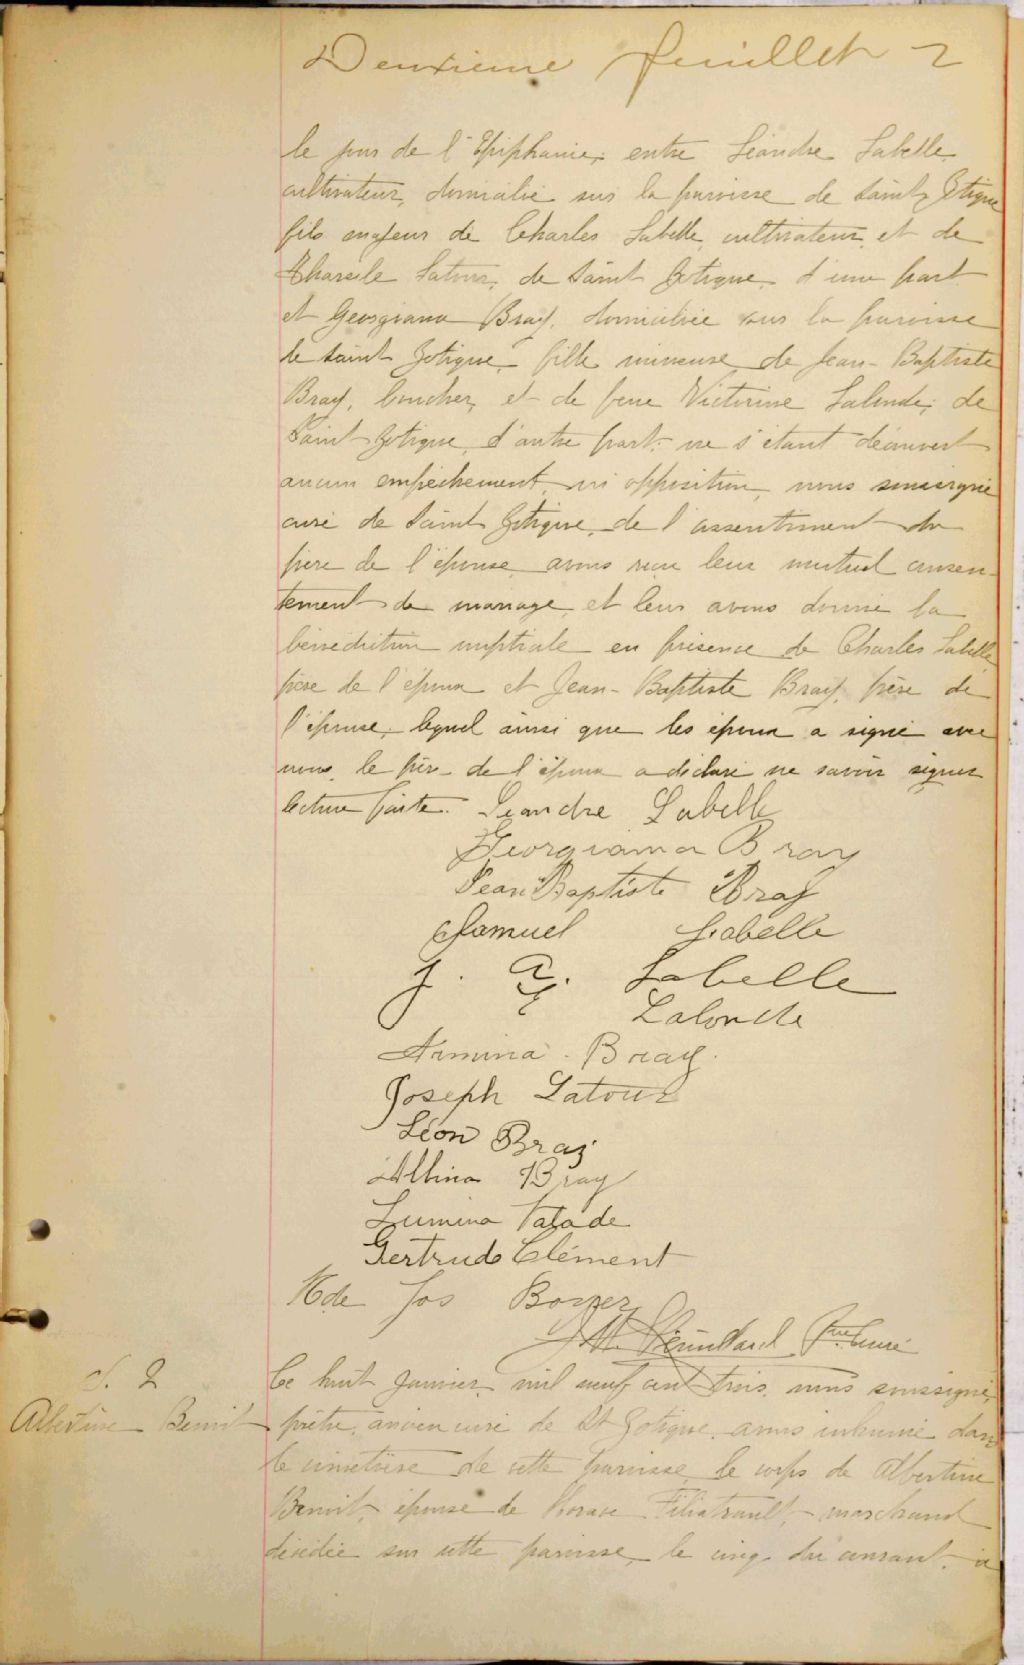 Deuxieme feuillet 2
le jour de l'Epiphanie, entre Léandre Labelle
cultivateur, domicilié sur la paroisse de Saint Zotique
fils majeur de Charles Labelle, cultivateur et de
Tharsile Latour, de Saint Zotique d'une part
et Georgiana Bray, domiciliée sur la paroisse
de Saint Zotique, fille mineure de Jean-Baptiste
Bray, boucher, et de feue Victorine Lalonde, de
Saint Zotique, d'autre part; ne s'étant découvert
aucun empêchement, ni opposition, nous soussigné
curé de Saint Zotique, de l'assentiment du
père de l'épouse avons reçu leur mutuel consen-
tement de mariage, et leur avons donné la
bénédiction nuptiale en présence de Charles Labelle
père de l'époux et Jean-Baptiste Bray, père de
l'épouse, lequel ainsi que les époux a signé avec
nous, le père de l'époux a déclaré ne savoir signer
lecture faite. Leandre Labelle
Georgianna Bray
Jean Baptiste Bray
Samuel Labelle
J. A. Labelle
Lalonde
Armina Bray.
Joseph Latour
Léon Bray
Albina Bray
Lumina
Gertrude Clément
Mde Jos
Ptre Curé
S. 2
Albertine Benoit
Ce huit Janvier, mil neuf cent trois, nous soussigné,
prêtre, ancien curé de St Zotique, avons inhumé dans
le cimetière de cette paroisse, le corps de Albertine
Benoit, épouse de Horace Filiatrault, marchand
décédée sur cette paroisse, le cinq du courant, à